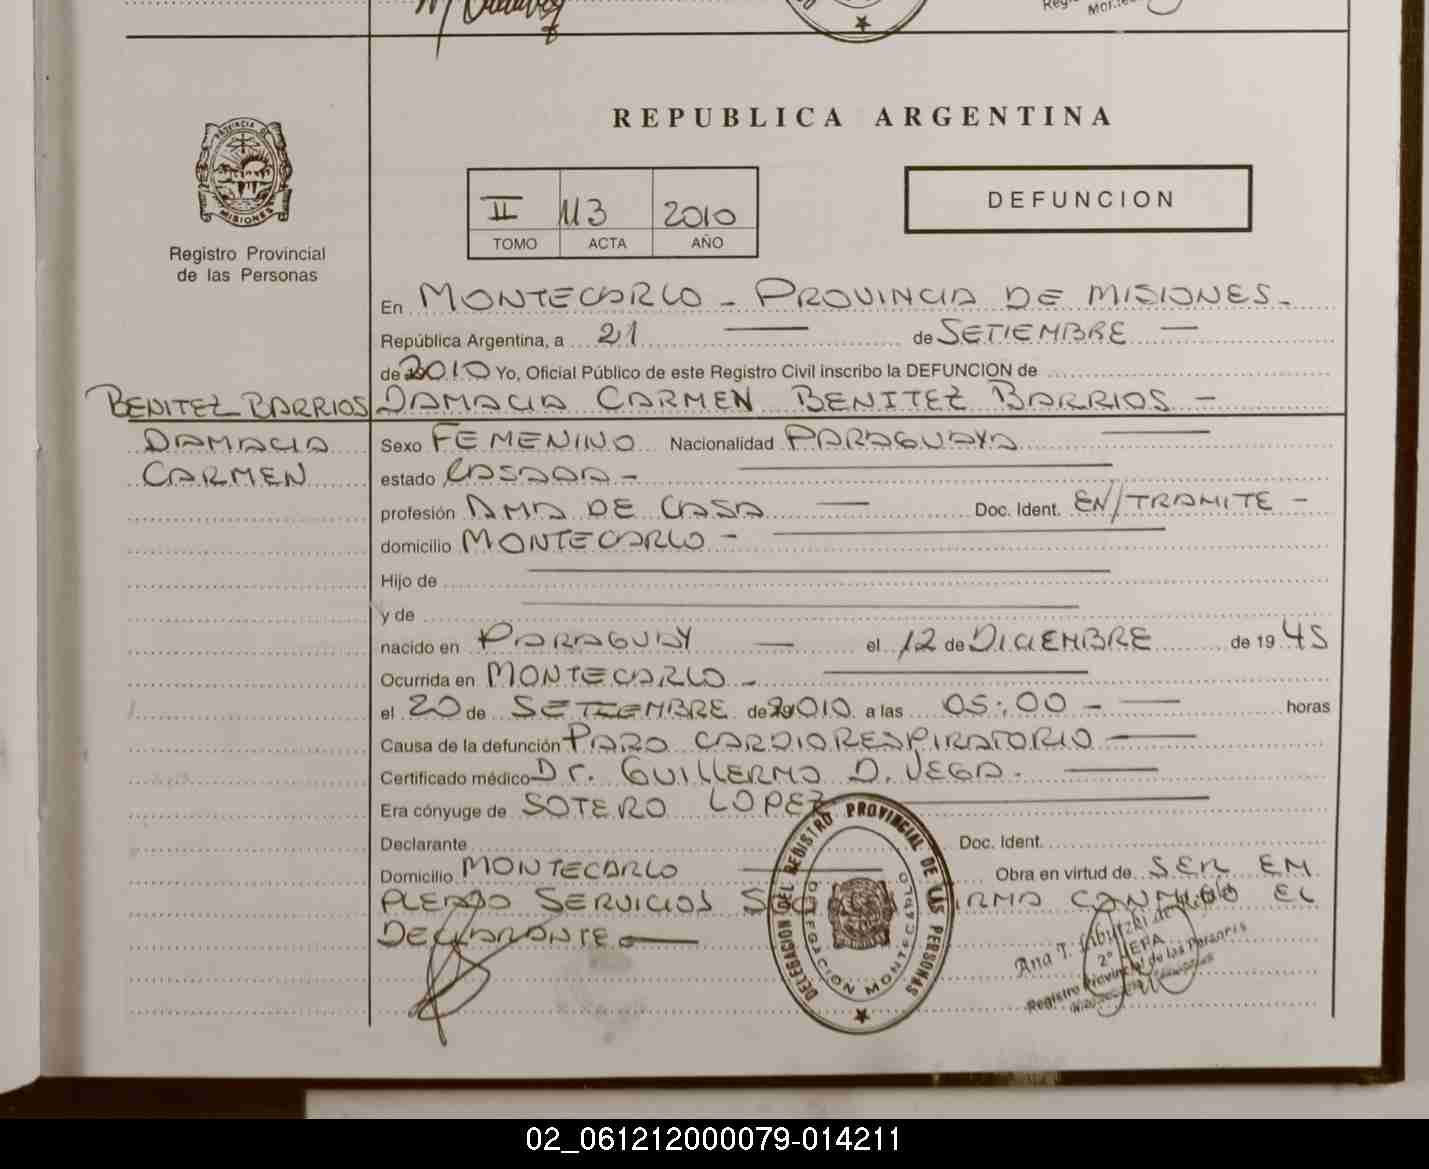 REPUBLICA ARGENTINA
PROVINCIA DE
MISIONES
Registro Provincial
de las Personas
II 113 2010
TOMO ACTA AÑO
DEFUNCION
En MONTECARLO - PROVINCIA DE MISIONES -
República Argentina, a 21 — de SETIEMBRE —
de 2010 Yo, Oficial Público de este Registro Civil inscribo la DEFUNCION de
BENITEZ BARRIOS DAMACIA CARMEN BENITEZ BARRIOS -
DAMACIA Sexo FEMENINO Nacionalidad PARAGUAYA —
CARMEN estado CASADA -
profesión AMA DE CASA — Doc. Ident. EN/TRAMITE -
domicilio MONTECARLO -
Hijo de
y de
nacido en PARAGUAY — el 12 de DICIEMBRE de 19 45
Ocurrida en MONTECARLO -
el 20 de SETIEMBRE de 2010 a las 05:00 - — horas
Causa de la defunción PARO CARDIORESPIRATORIO -
Certificado médico Dr. GUILLERMO D. VEGA. —
Era cónyuge de SOTERO LOPEZ
Declarante Doc. Ident.
Domicilio MONTECARLO — Obra en virtud de SER EM
PLEADO SERVICIOS IRMA CONMIGO EL
DECLARANTE —
DELEGACION DEL REGISTRO PROVINCIAL DE LAS PERSONAS
DELEGACION MONTECARLO
Ana T.
2° JEFA
Registro Provincial de las Personas
02_061212000079-014211